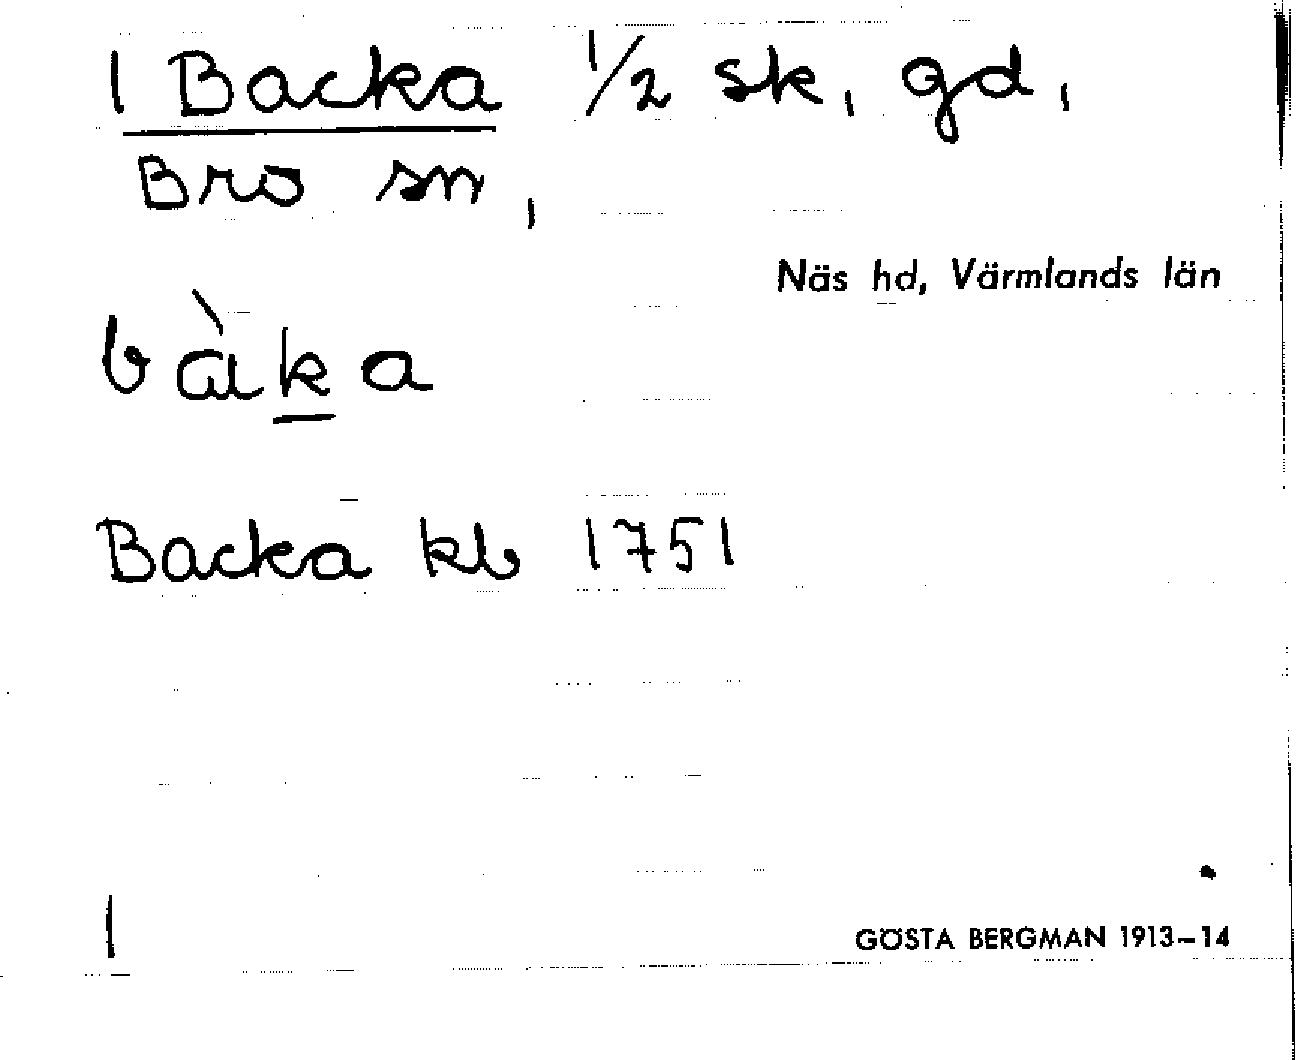 1 Backa 1/2 sk, gd,
Bro sn,
Näs hd, Värmlands län
bàka
Backa kb 1751
1
GÖSTA BERGMAN 1913-14